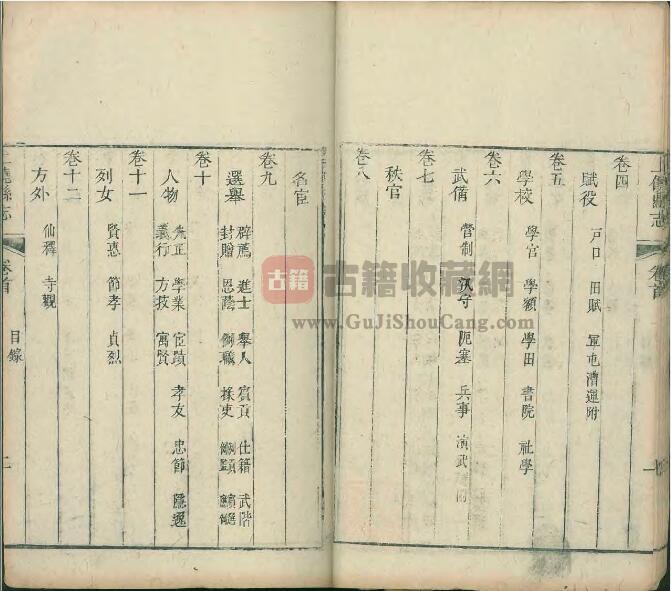 上饒縣志
卷首
一
卷四
賦役
戶口 田賦 軍屯漕運附
卷五
學校
學官 學額 學田 書院 社學
卷六
武備
營制 汛守 阨塞 兵事 演武
卷七
秩官
卷八
名宦
卷九
選舉
辟薦 進士 舉人 貢貢 仕籍 武階
封贈 恩蔭 例職 掾吏
卷十
人物
先正 學業 宦蹟 孝友 忠節 隱逸
義行 方技 寓賢
卷十一
列女
賢惠 節孝 貞烈
卷十二
方外
仙釋 寺觀
上饒縣志
卷首
目錄
二
古籍
古籍收藏网
www.GuJiShouCang.com